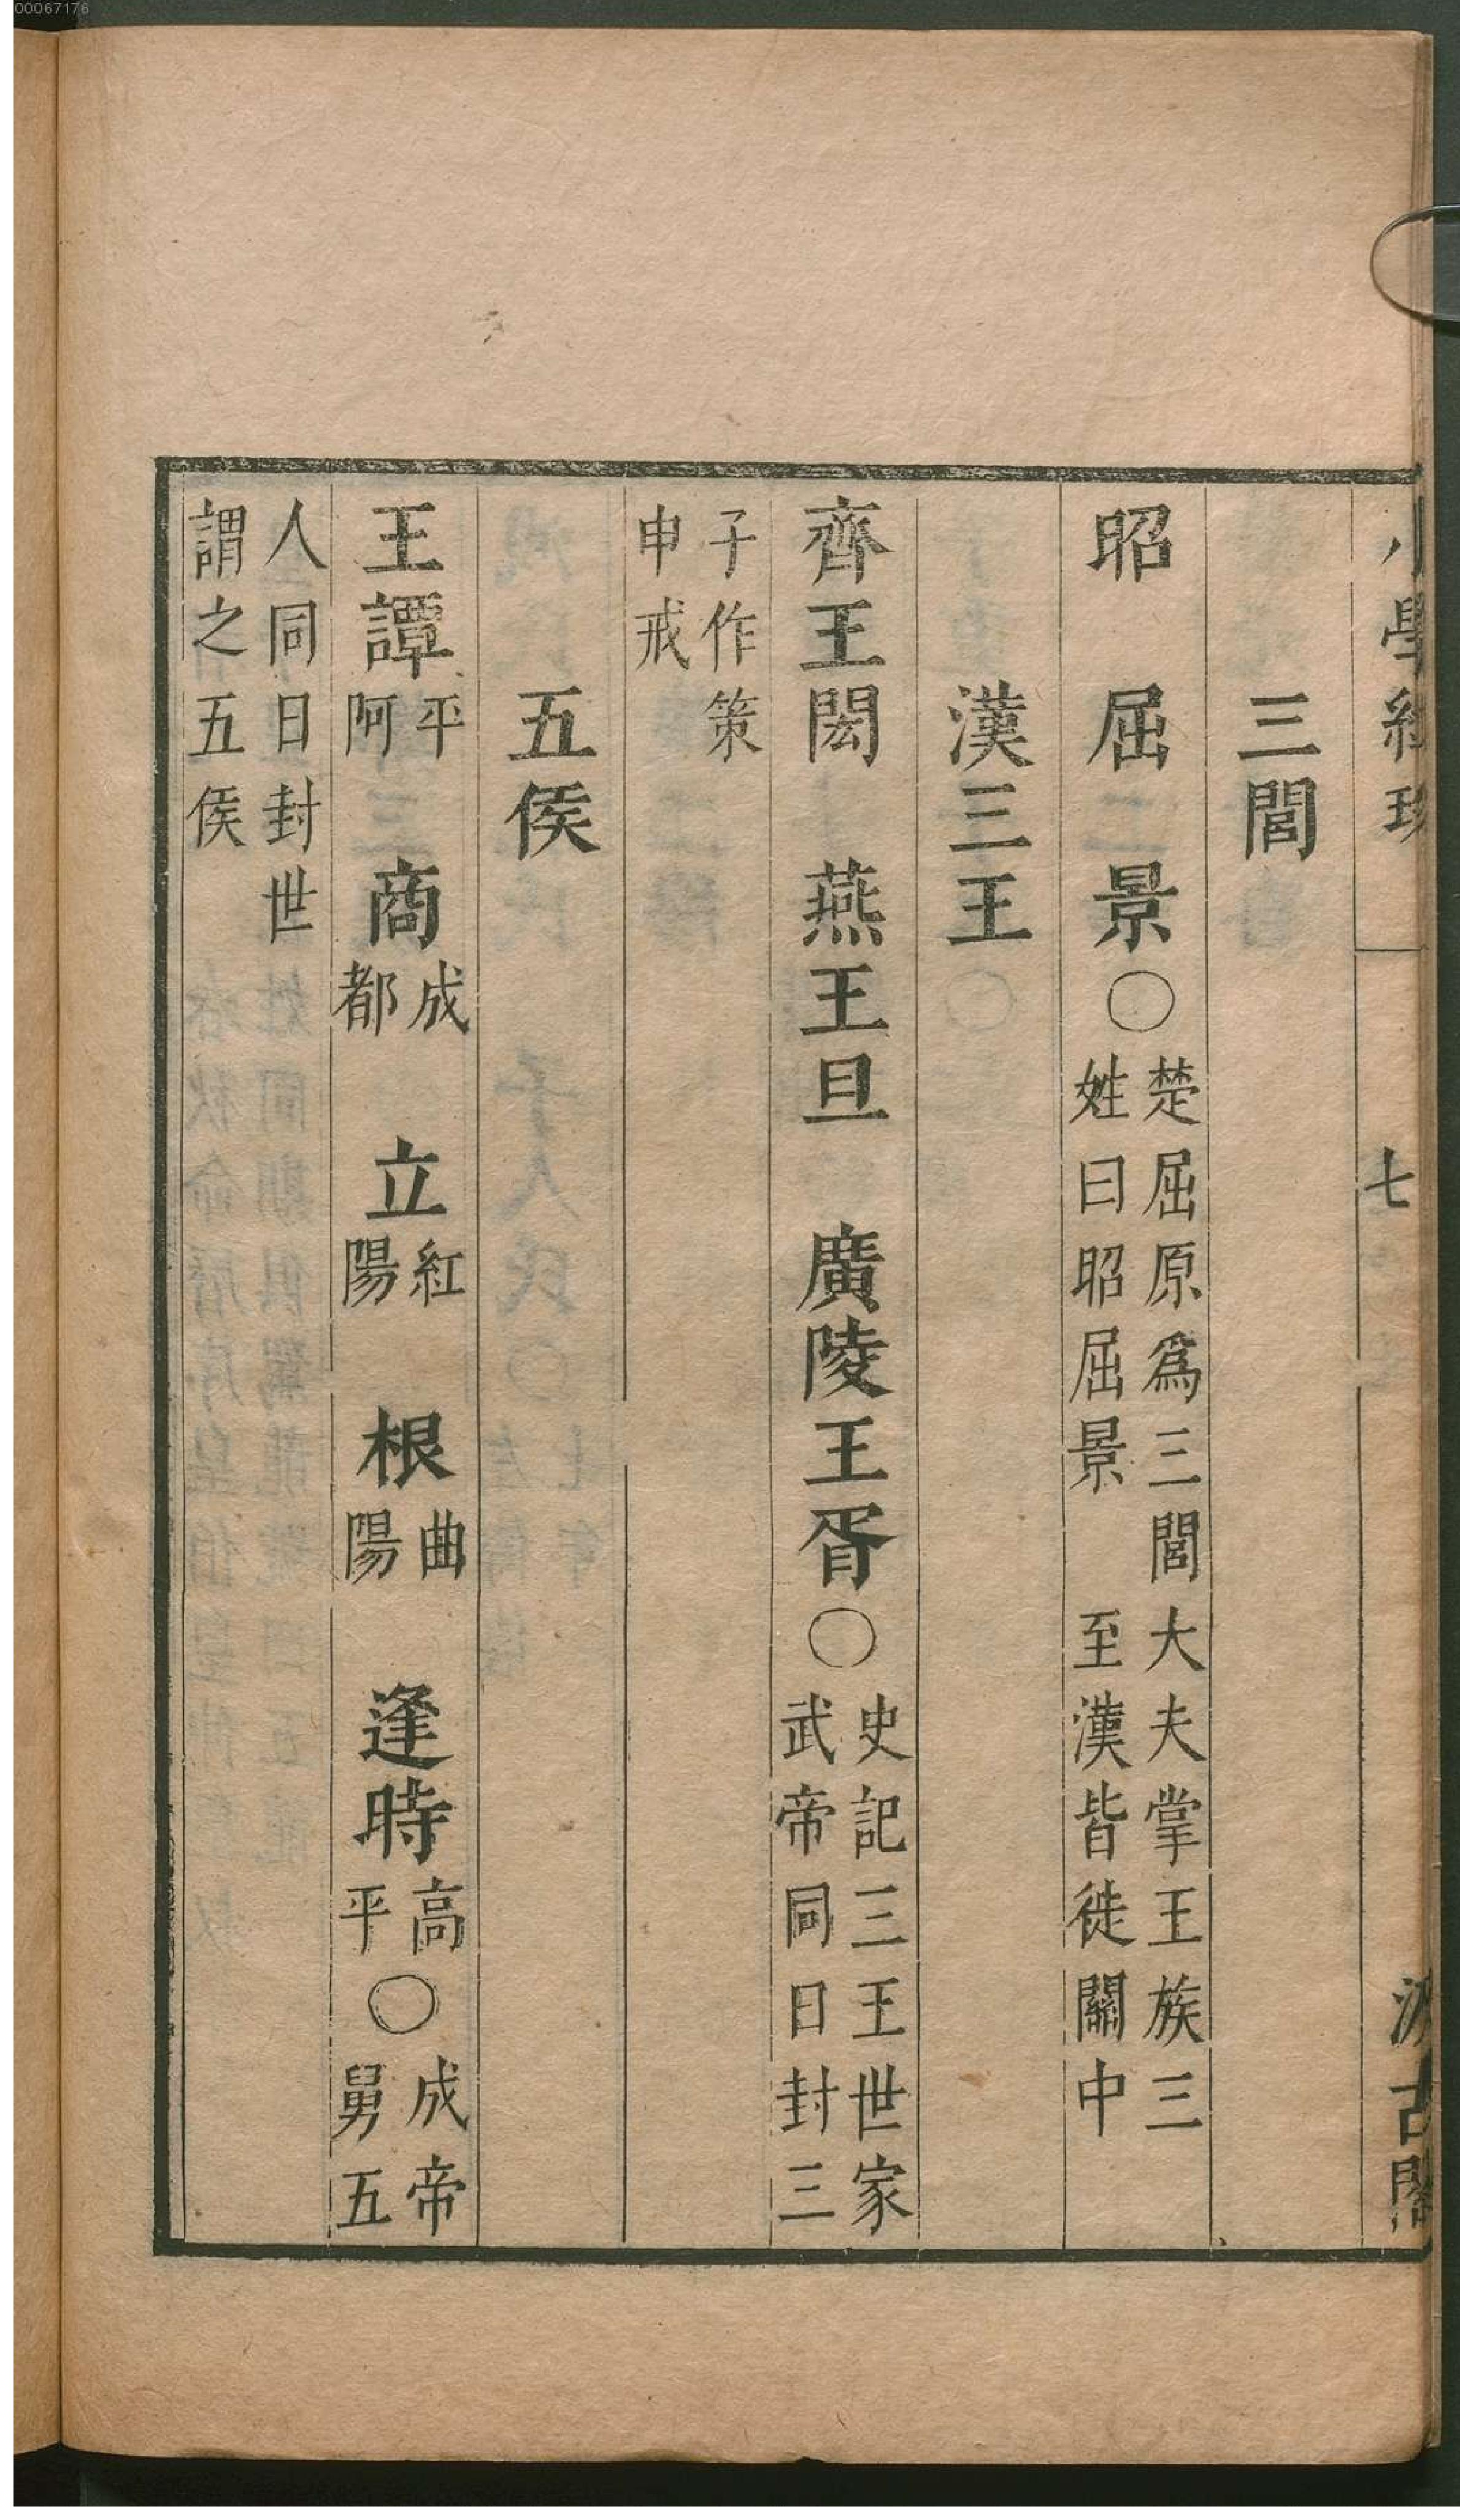 00067176
小學紺珠
七
汲古閣
三閭
昭 屈 景〇楚屈原爲三閭大夫掌王族三
姓曰昭屈景 至漢皆徙關中
漢三王
齊王閎 燕王旦 廣陵王胥〇史記三王世家
武帝同日封三
子作策
申戒
五侯
王譚平阿 商成都 立紅陽 根曲陽 逢時高平〇成帝
舅五
人同日封世
謂之五侯